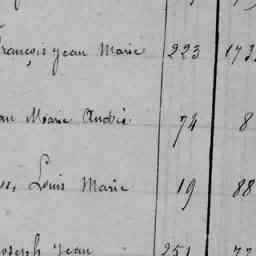 François Jean Marie 223 173
Marie André 74 8
Louis Marie 19 88
Joseph Jean 251 77